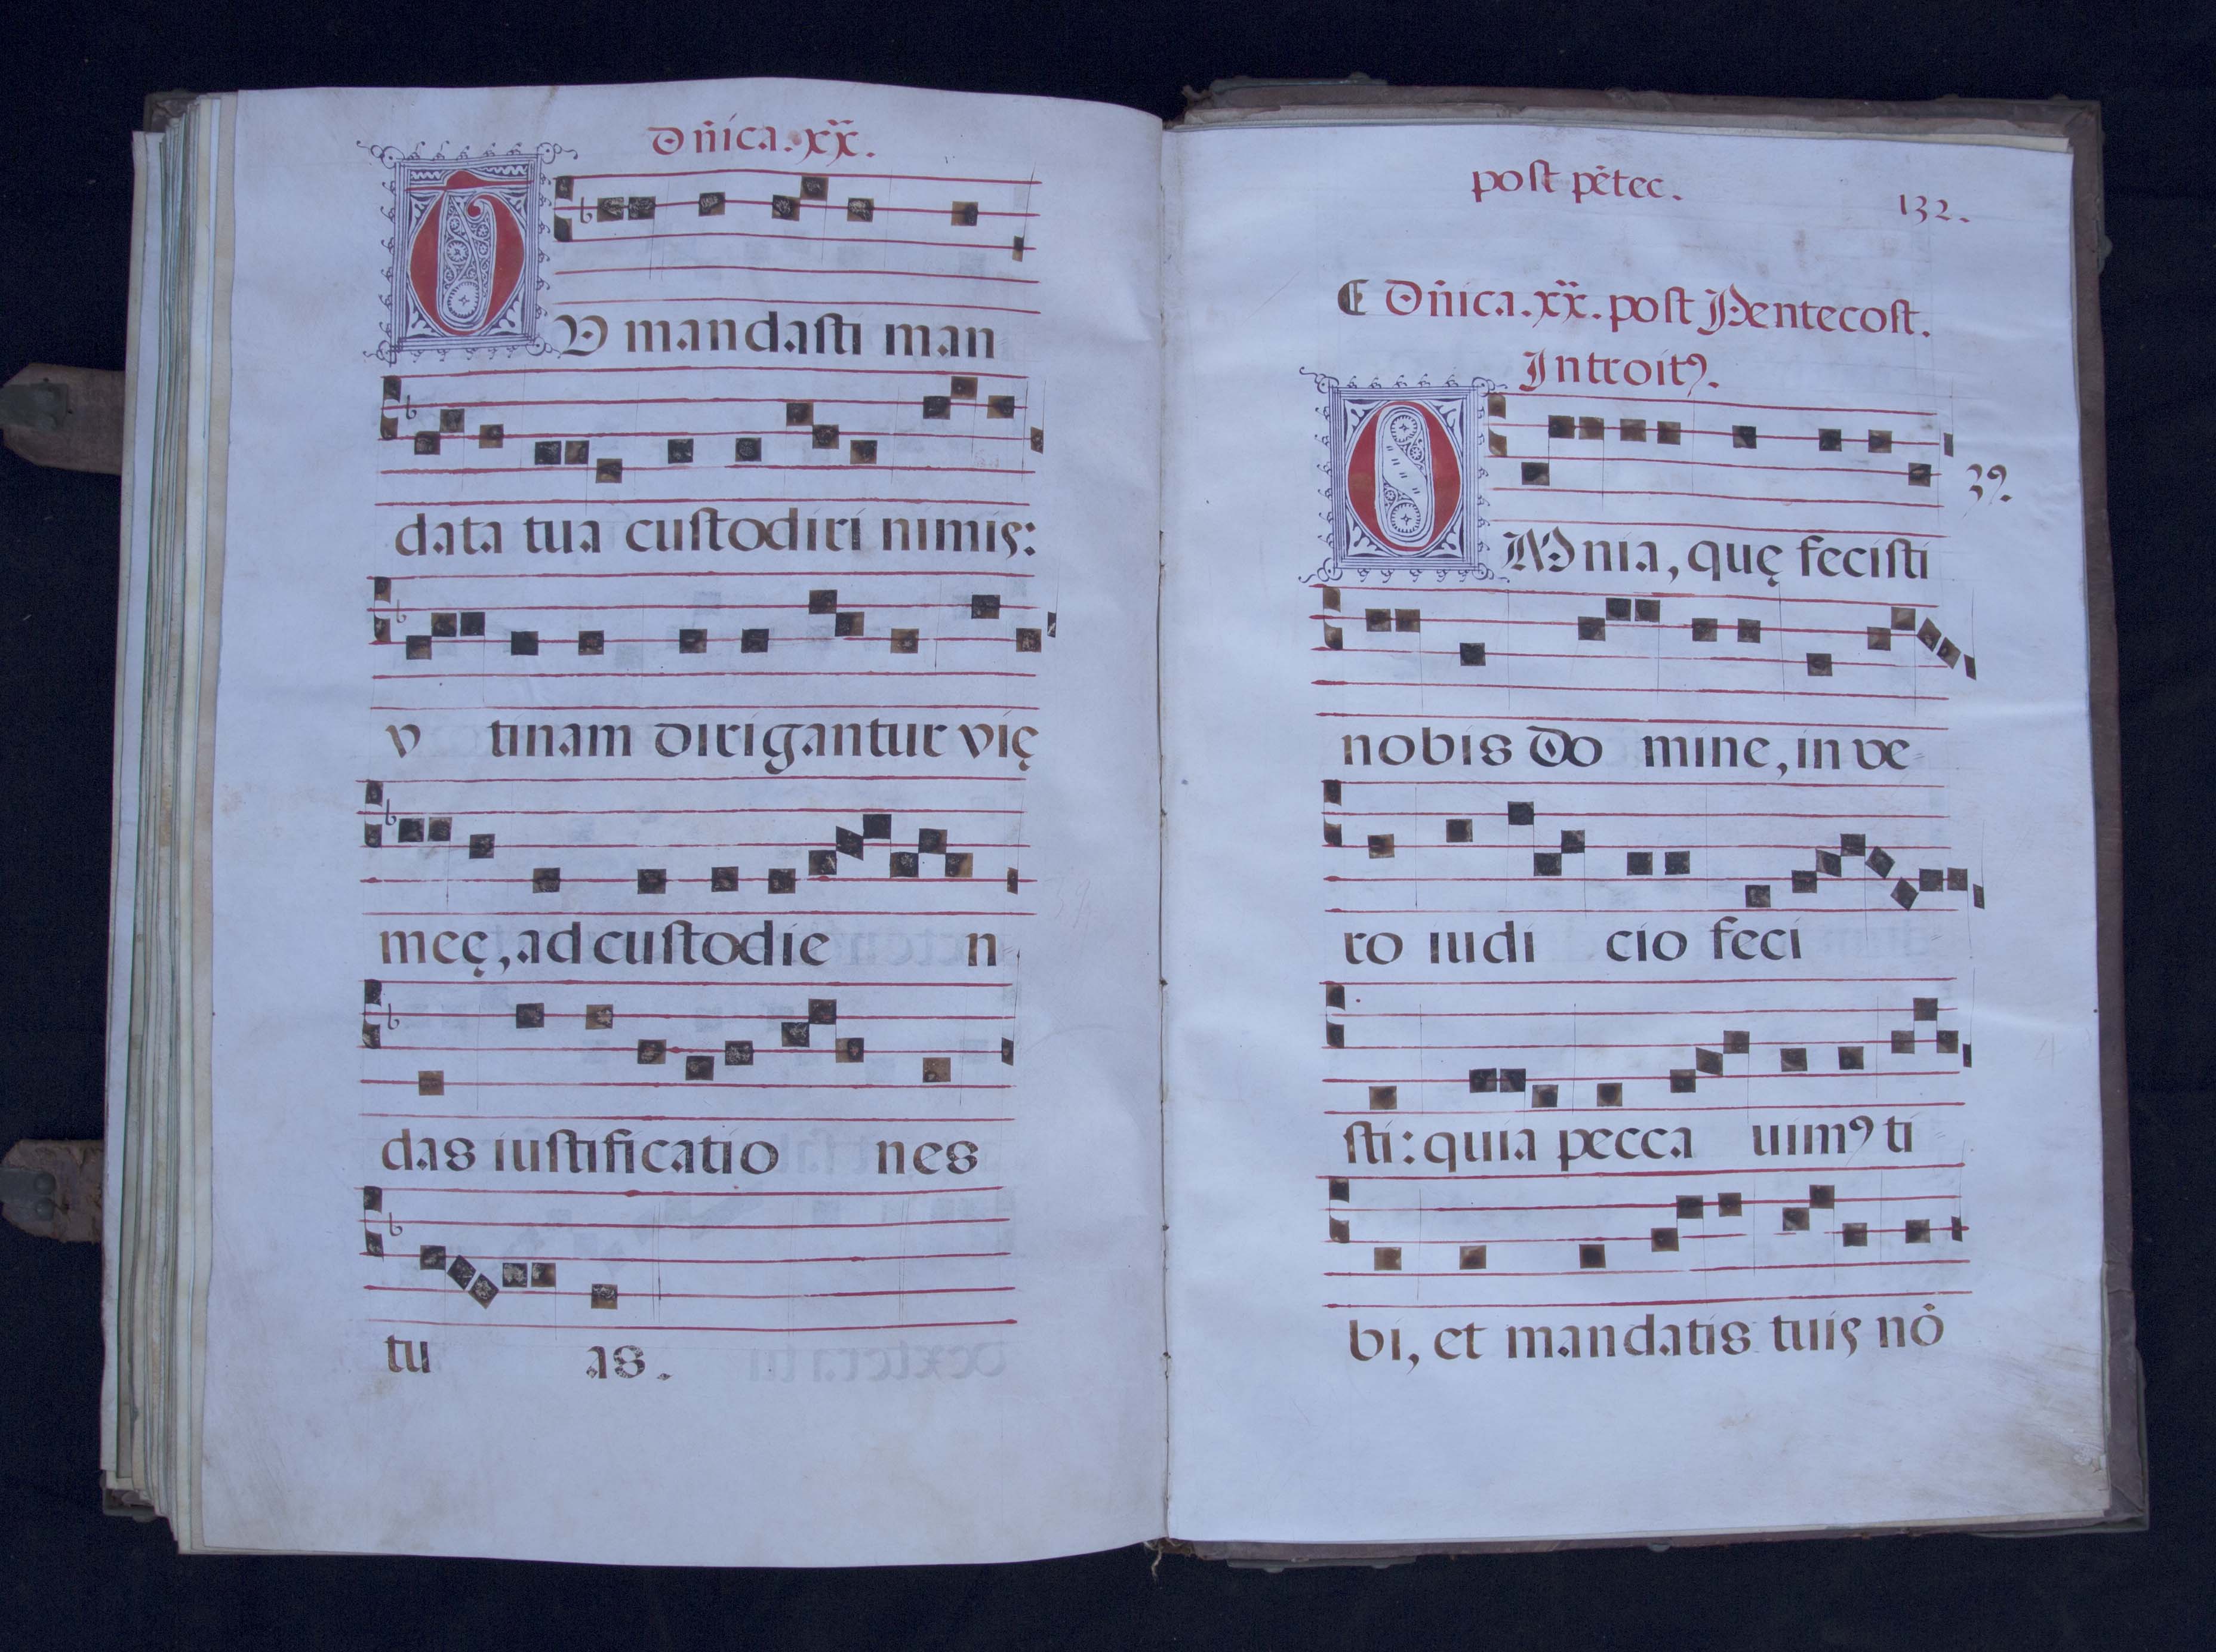 Dñica. xx.
TV mandasti man
data tua custodiri nimis:
v tinam dirigantur vię
meę, ad custodie n
das iustificatio nes
tu as.
post pētec. 132.
Dñica. xx. post Pentecost.
Introitꝰ.
OMnia, quę fecisti
nobis Do mine, in ve
ro iudi cio feci
sti: quia pecca uimꝰ ti
bi, et mandatis tuis nõ